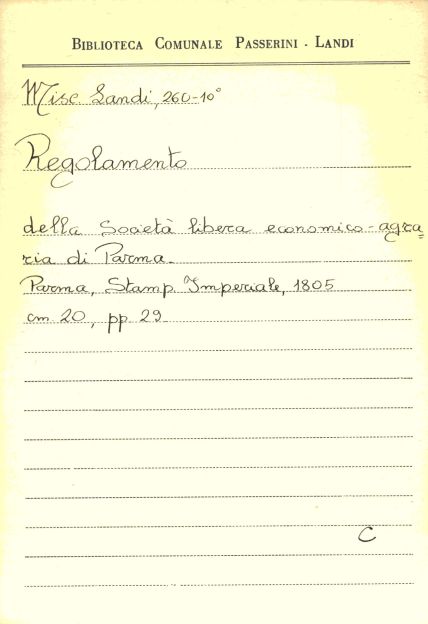 BIBLIOTECA COMUNALE PASSERINI - LANDI
Misc. Landi, 260-10°
Regolamento
della Società libera economico-agra=
ria di Parma.
Parma, Stamp. Imperiale, 1805
cm 20, pp. 29
C